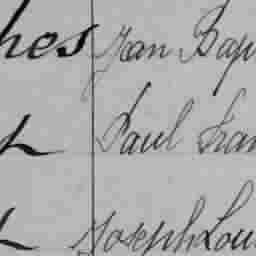 hes Jean Bap
Paul Fran
Joseph Lou